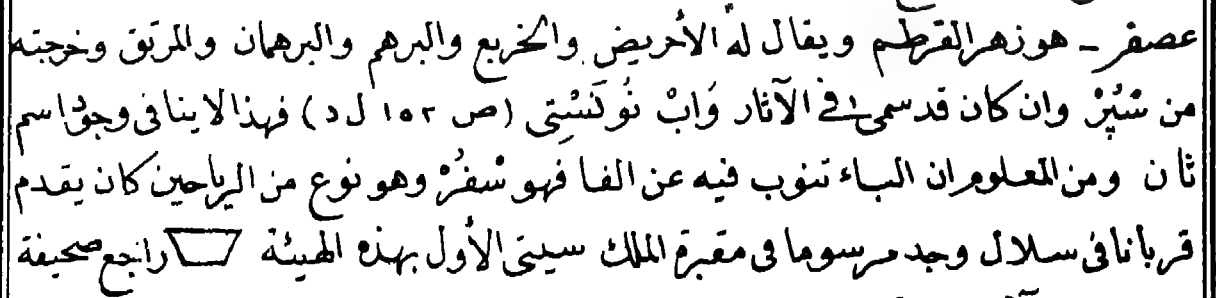 عصفر ـ هو زهر القرطم ويقال له الأحريض والخريع والبرهم والبرهمان والمريق وخرجته
من سُپْرْ وان كان قد سمى فى الآثار وَابْ نُوكَسْتِى (ص ١٥٢ ل د) فهذا لاينافى وجود اسم
ثان ومن المعلوم ان الباء تنوب فيه عن الفا فهو سْفُرْ وهو نوع من الرياحين كان يقدم
قربانا فى سلال وجد مرسوما فى مقبرة الملك سيتى الأول بهذه الهيئة راجع صحيفة